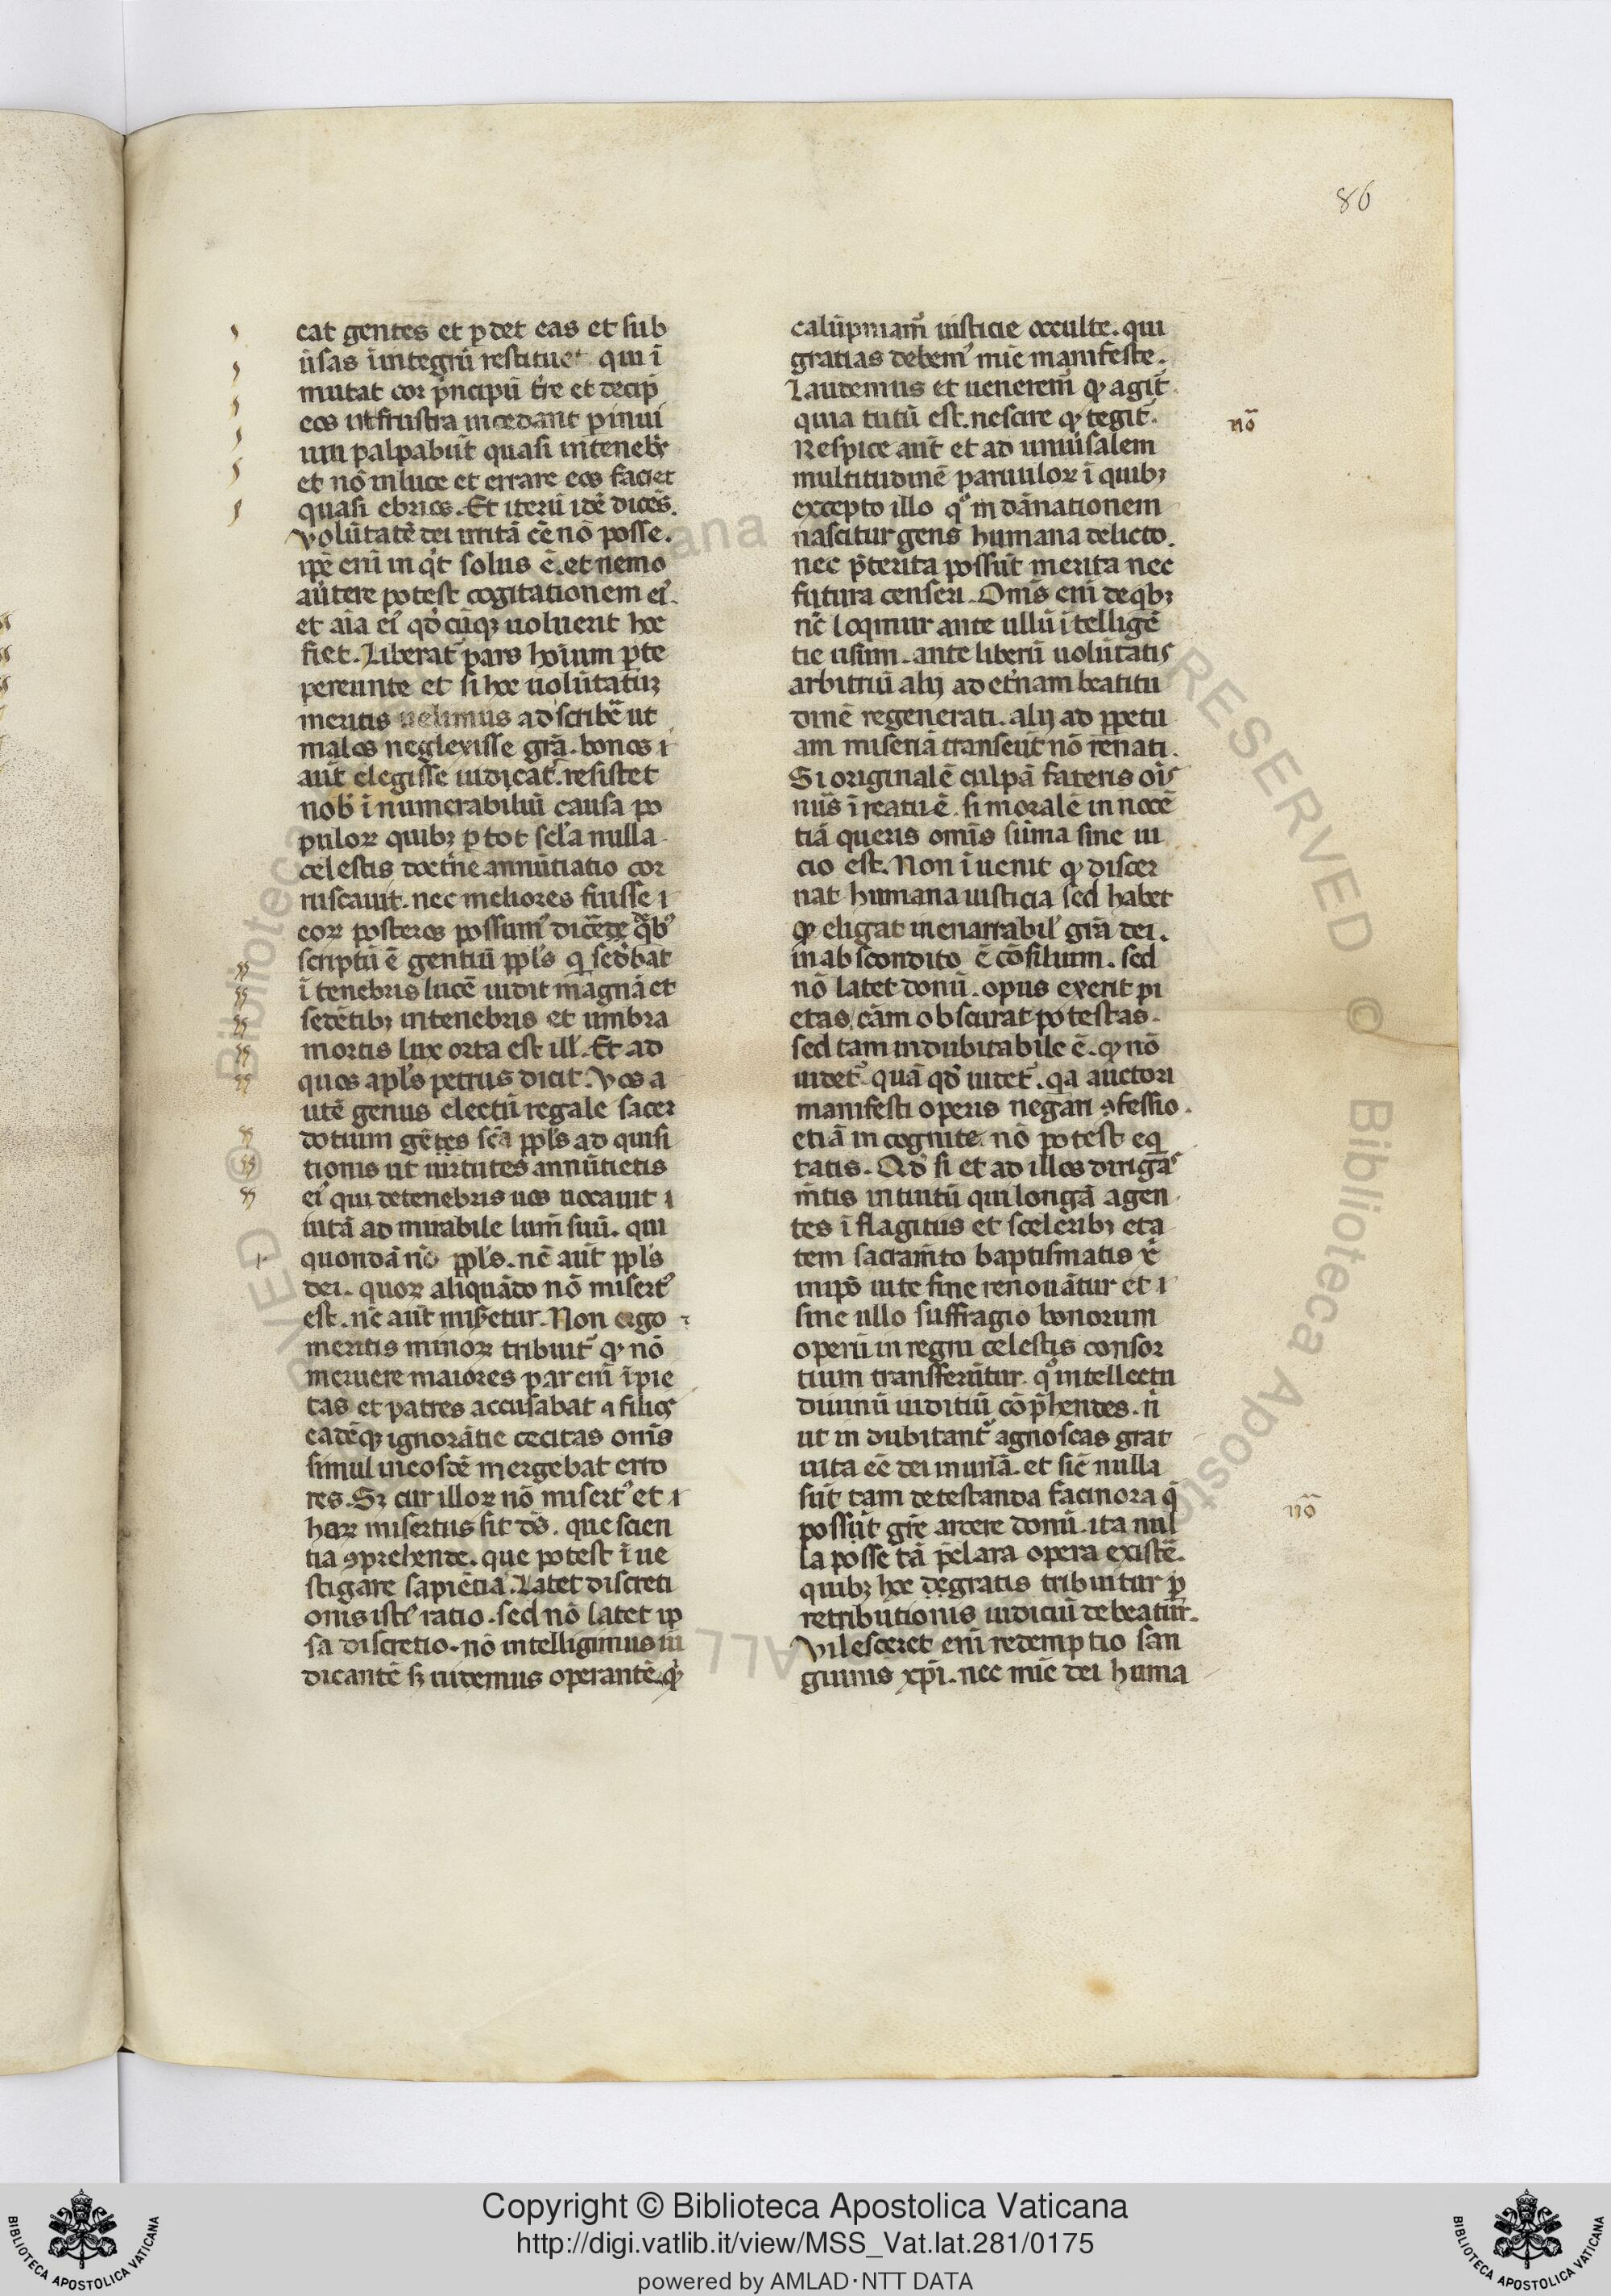 86
cat gentes et ꝑdet eas et sub
ũsas ĩ integrũ restituet qui ĩ
mutat cor pͥncipũ tr̃e et decip̃
eos ut frustra incedant ꝑ inui
um palpabũt quasi in tenebͥs
et nõ in luce et errare eos faciet
quasi ebrios. Et iterũ idẽ dicẽs.
Volũtatẽ dei irritã eẽ nõ posse.
ip̃e eni in qͥt solus ẽ. et nemo
aũtere potest cogitationem eiꝰ.
et aĩa eiꝰ qd̃cũqꝫ uoluerit hoc
fiet. Liberat᷑ pars hoĩum ꝑte
pereunte et si hoc uolũtatũꝫ
meritis uelimus adscribẽ ut
malos neglexisse grã. bonos ı
aũt elegisse iudicat᷑. resistet
nob̾ ĩnumerabiliũ causa po
puloꝝ quibꝫ ꝑ tot scl̃a nulla
celestis doctͥne annũtiatio cor
ruscauit. nec meliores fuisse ı
eoꝝ posteros possumꝰ dicẽ de qͥbꝰ
scriptũ ẽ gentiũ ppl̃s qͥ sed̾bat
ĩ tenebris lucẽ uidit magnã et
sedẽtibꝫ in tenebris et umbra
mortis lux orta est ill̾. Et ad
quos apl̃s petrus dicit. Vos a
utẽ genus electũ regale sacer
dotium gẽtes sc̃a ppl̃s ad quisi
tionis ut uirtutes annũtietis
eiꝰ qui de tenebris uos uocauit ı
iutã ad mirabile lum̃ suũ. qui
quondã nõ ppl̃s. nc̃ aũt ppl̃s
dei. quoꝝ aliquãdo nõ misert᷑
est. nc̃ aũt mis̾etur. Non ergo
meritis minoꝝ tribuit᷑ qͩ nõ
meruere maiores par eni ĩpie
tas et patres accusabat ⁊ filios
eadẽqꝫ ignorãtie cecitas om̃s
simul in eosdẽ mergebat erro
res. Sꝫ cur illoꝝ nõ misert᷑ et ı
haꝝ misertus sit ds̃. que scien
tia ꝯprehende. que potest ĩue
stigare sapiẽtia. Latet discreti
onis istiꝰ ratio. sed nõ latet ip
sa discretio. nõ intelligimus iu
dicantẽ sꝫ uidemus operantẽ. qͥ
calũpniam᷑ iusticie occulte. qui
gratias debemꝰ mĩe manifeste.
Laudemus et uenerem᷑ qͩ agit᷑.
quia tutũ est. nescire qͩ tegit᷑.
Respice aũt et ad uniũsalem
multitudinẽ paruuloꝝ ĩ quibꝫ
excepto illo qͦ in dãnationem
nascitur gens humana delicto.
nec p̃terita possũt merita nec
futura censeri. Om̃s eni de qͥbꝫ
nc̃ loqmur ante ullũ ĩtelligẽ
tie usum. ante liberũ uolũtatis
arbitriũ alij ad et̾nam beatitu
dinẽ regenerati. alij ad ꝑpetu
am miseriã transeũt nõ renati.
Si originalẽ culpã fateris oĩs
nũs ĩ reatu ẽ. si moralẽ innocẽ
tiã queris om̃s sũma sine ui
cio est. Non ĩuenit qͩ discer
nat humana iusticia sed habet
qͩ eligat inenarrabil̾ grã dei.
in abscondito ẽ cõsilium. sed
nõ latet donũ. opus exerit pi
etas, cãm obscurat potestas.
sed tam indubitabile ẽ. qͩ nõ
uidet᷑ quã qd̃ uidet᷑. qa auctori
manifesti operis negari ꝯfessio.
etiã incognite. nõ potest eqͥ
tatis. Qd̃ si et ad illos dirigãs
m̃tis intuitũ qui longã agen
tes ĩ flagitiis et sceleribꝫ eta
tem sacram̃to baptismatis ẽ
impõ uite fine renouãtur et ı
sine ullo suffragio bonorum
operũ in regni celestis consor
tium transferũtur. qͦ intellectu
diuinũ iuditiũ cõp̃hendes. ñ
ut indubitant᷑ agnoscas grat
uita eẽ dei munã. et sic̃ nulla
sũt tam detestanda facinora q̃
possũt gr̃e arcere donũ. ita nul
la posse tã p̃clara opera existẽ.
quibꝫ hoc de gratis tribuitur ꝑ
retributionis iudiciũ debeatur̃.
Vilesceret eni redemptio san
guinis xp̃i. nec mĩe dei huma
nõ
nõ
Copyright © Biblioteca Apostolica Vaticana
http://digi.vatlib.it/view/MSS_Vat.lat.281/0175
powered by AMLAD·NTT DATA
BIBLIOTECA APOSTOLICA VATICANA
BIBLIOTECA APOSTOLICA VATICANA